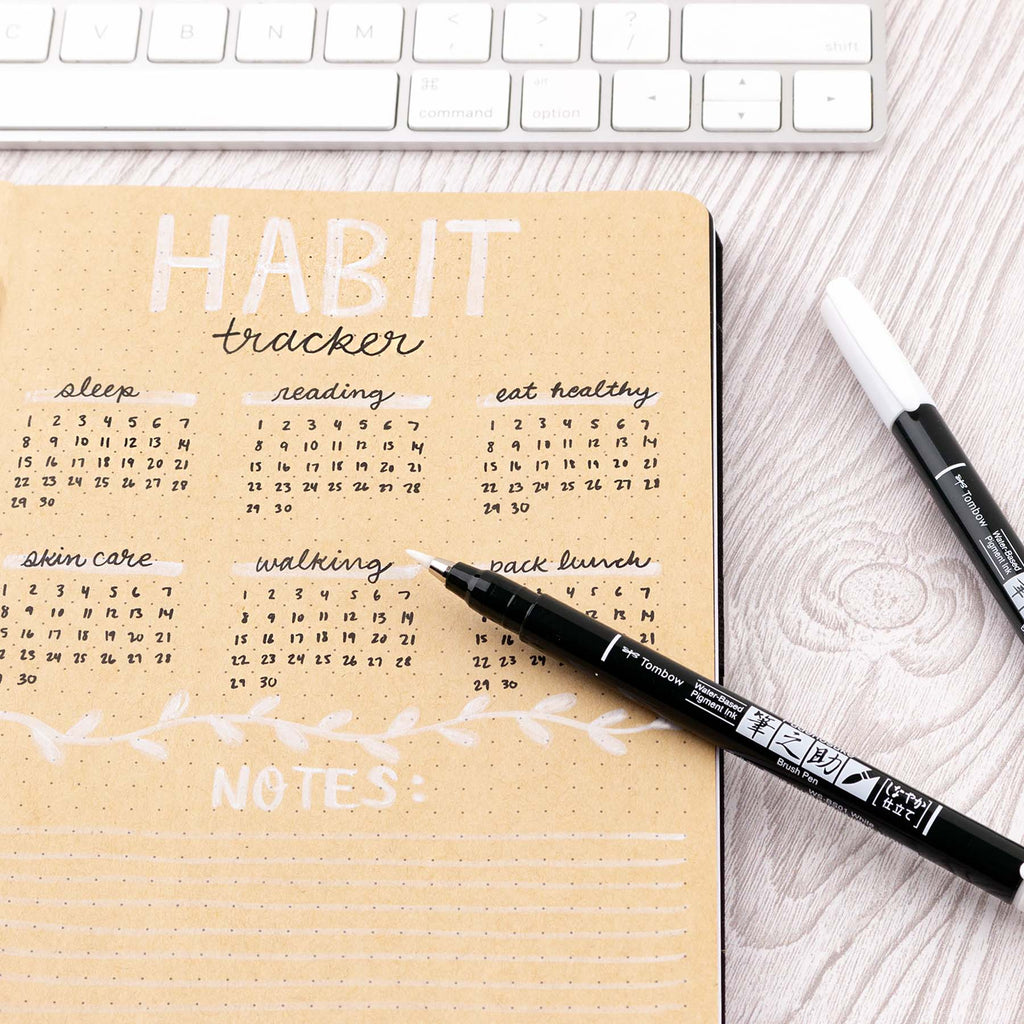 C V B N M < , > . ? / shift
⌘ command alt option ◄ ▲ ▼ ►
HABIT
tracker
sleep
1 2 3 4 5 6 7
8 9 10 11 12 13 14
15 16 17 18 19 20 21
22 23 24 25 26 27 28
29 30
reading
1 2 3 4 5 6 7
8 9 10 11 12 13 14
15 16 17 18 19 20 21
22 23 24 25 26 27 28
29 30
eat healthy
1 2 3 4 5 6 7
8 9 10 11 12 13 14
15 16 17 18 19 20 21
22 23 24 25 26 27 28
29 30
skin care
1 2 3 4 5 6 7
8 9 10 11 12 13 14
5 16 17 18 19 20 21
2 23 24 25 26 27 28
9 30
walking
1 2 3 4 5 6 7
8 9 10 11 12 13 14
15 16 17 18 19 20 21
22 23 24 25 26 27 28
29 30
pack lunch
4 5 6 7
11 12 13 14
15 16 20 21
22 23 24
29 30
NOTES:
Tombow
Water-Based
Pigment Ink
筆之助
Brush Pen
しなやか
仕立て
Tombow
Water-Based
Pigment Ink
筆